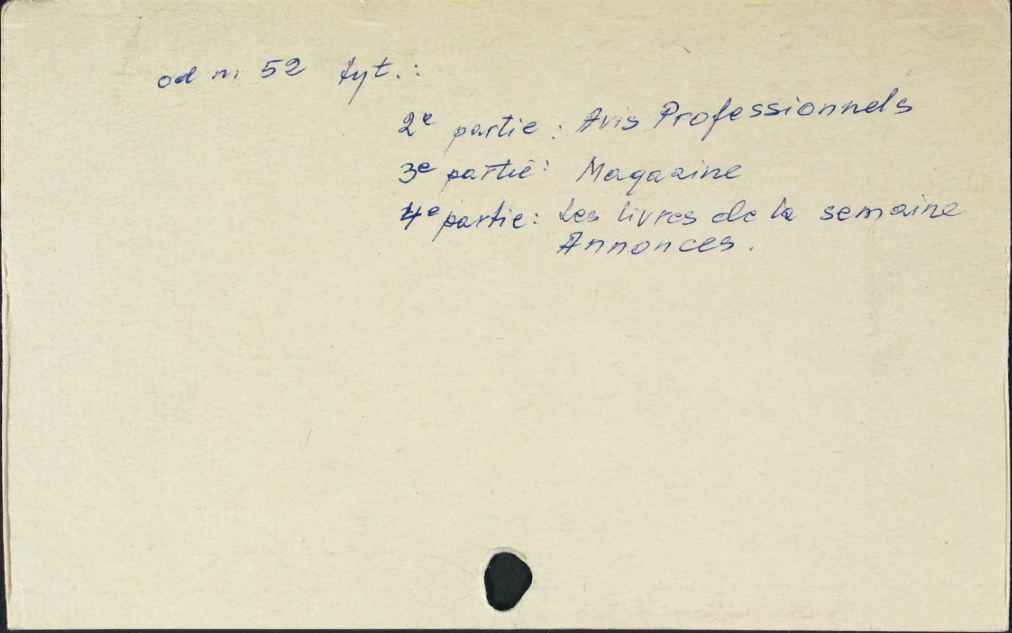 od nr 52 tyt.:
2e partie: Avis Professionnels
3e partie: Magazine
4e partie: Les livres de la semaine
Annonces.